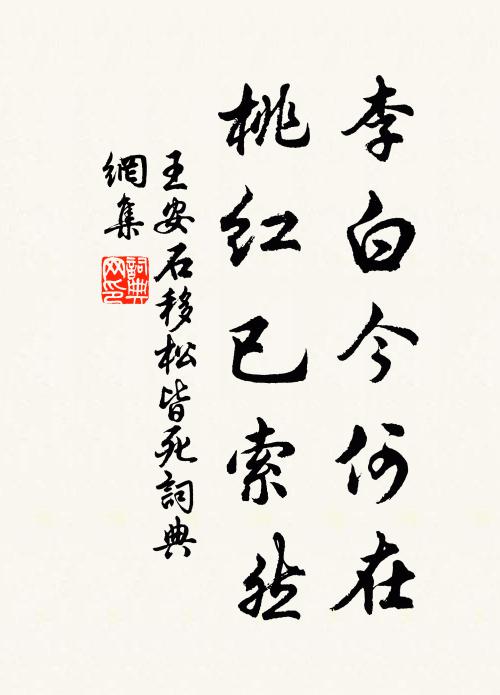 李白今何在
桃红已索然
王安石移松皆死詞典
網集
詞典網印